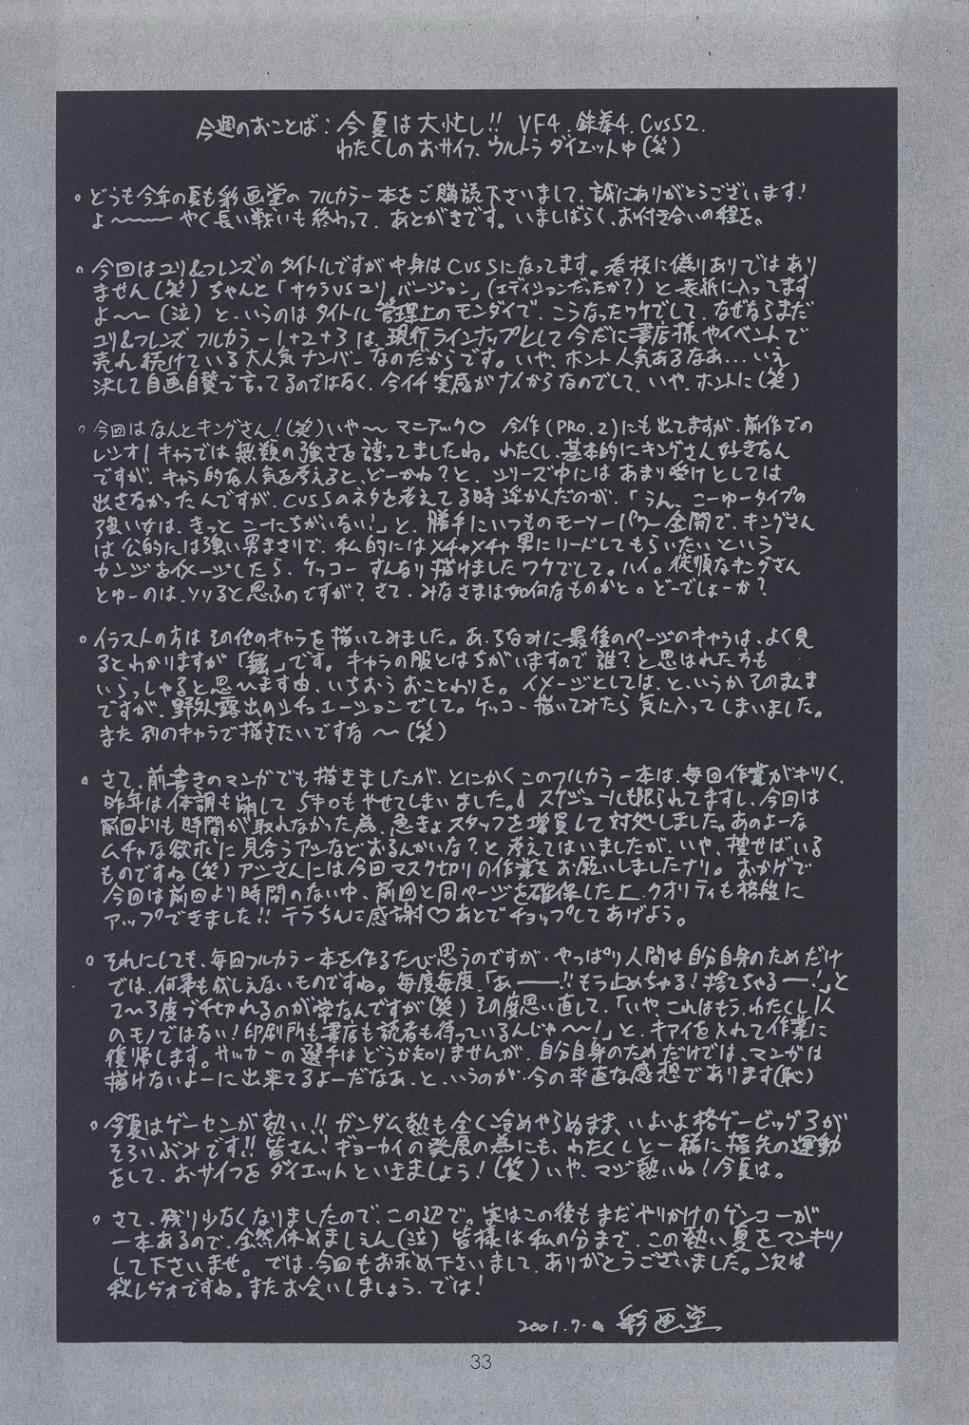 今週のおことば:今夏は大忙し!! VF4.鉄拳4.CvsS2.
わたくしのおサイフ、ウルトラ ダイエット中(笑)
。どうも今年の夏も彩画堂の フルカラー本をご購読下さいまして、誠にありがとうございます!
よ〜〜〜やく長い戦いも終わって、あとがきです。いましばらく、お付き合いの程を。
。今回はユリ&フレンズのタイトルですが中身はCvsSになってます。看板に偽りありではあり
ません(笑) ちゃんと「サクラvsユリ バージョン」(エディションだったか?)と表紙に入ってます
よ〜〜(泣) と、いうのはタイトル管理上のモンダイで、こうなったワケでして、なぜならまだ
ユリ&フレンズ フルカラー1+2+3は、現行ラインナップとして今だに書店様やイベントで
売れ続けている大人気ナンバーなのだからです。いや、ホント人気あるなあ…いえ
決して自画自賛で言ってるのではなく、今イチ実感がナイからなのでして、いや、ホントに(笑)
。今回はなんとキングさん!(笑)いや〜マニアック♡ 今作(PRO.2)にも出てますが、前作での
レシオ1キャラでは無類の強さを誇ってましたね。わたくし、基本的にキングさん好きなん
ですが、キャラ的な人気を考えると、どーかね?と、シリーズ中にはあまり受けとしては
出さなかったんですが、CvsSのネタを考えてる時浮かんだのが、「うん、こーゆータイプの
強い女は、きっとこーにちがいない!」と、勝手にいつものモーソーパワー全開で、キングさん
は公的には強い男まさりで、私的にはメチャメチャ男にリードしてもらいたいという
カンジをイメージしたら、ケッコーすんなり描けましたワケでして。ハイ。従順なキングさん
とゆーのは、ソソると思うのですが?さて、みなさまは如何なものかと。どーでしょーか?
。イラストの方はその他のキャラを描いてみました。あ、ちなみに最後のページのキャラは、よく見
るとわかりますが「舞」です。キャラの服とはちがいますので誰?と思はれた方も
いらっしゃると思ひます由、いちおうおことわりを。イメージとしては、と、いうかそのまんま
ですが、野外露出のシチュエーションでして。ケッコー描いてみたら気に入ってしまいました。
また別のキャラで描きたいですな〜(笑)
。さて、前書きのマンガでも描きましたが、とにかくこのフルカラー本は、毎回作業がキツく、
昨年は体調も崩して 5キロもやせてしまいました。スケジュールも限られてますし、今回は
前回よりも時間が取れなかった為、急きょスタッフを増員して対処しました。あのよーな
ムチャな欲求に見合うアシなどおるんかいな?と考えてはいましたが、いや、捜せばいる
ものですね(笑)アシさんには今回マスク切りの作業をお願いしましたナリ。おかげで
今回は前回より時間のない中、前回と同ページを確保した上、クオリティも格段に
アップできました!! テラちんに感謝♡あとでチョップしてあげよう。
。それにしても、毎回フルカラー本を作るたび思うのですが、やっぱり人間は自分自身のためだけ
では、何事も成しえないものですね。毎度毎度、「あ――!!もう止めちゃる!捨てちゃる――!」と
2〜3度ブチ切れるのが常なんですが(笑) その度思い直して、「いや、これはもう、わたくし1人
のモノではない!印刷所も書店も読者も待っているんじゃ〜〜!」と、キアイを入れて作業に
復帰します。サッカーの選手はどうか知りませんが、自分自身のためだけでは、マンガは
描けないよーに出来てるよーだなあ、と、いうのが今の率直な感想であります(恥)
。今夏はゲーセンが熱い!! ガンダム熱も全く冷めやらぬまま、いよいよ格ゲービッグ3が
そろいぶみです!! 皆さん!ギョーカイの発展の為にも、わたくしと一緒に指先の運動
をして、おサイフをダイエットといきましょう!(笑) いや、マジ熱いね!今夏は。
。さて、残り少なくなりましたので、この辺で。実はこの後もまだやりかけのゲンコーが
一本あるので、全然休めましぇん(泣) 皆様は私の分まで、この熱い夏をマンキツ
して下さいませ。では、今回もお求め下さいまして、ありがとうございました。次は
秋レヴォですね。またお会いしましょう、では!
2001.7. 彩画堂
33